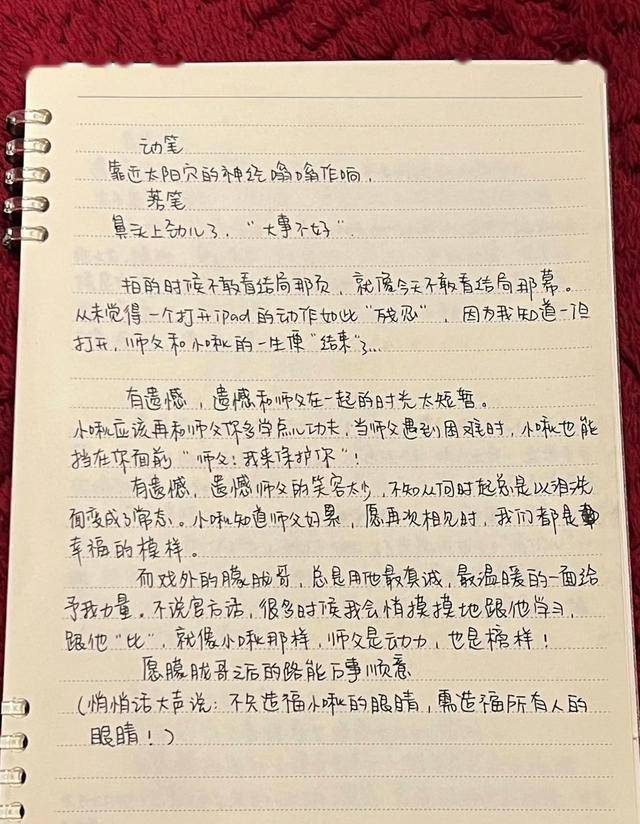 动笔
靠近太阳穴的神经嗡嗡作响,
落笔
鼻头上劲儿了,“大事不好”.
拍的时候不敢看结局那页,就像今天不敢看结局那幕。
从未觉得一个打开ipad的动作如此“残忍”,因为我知道一但
打开,师父和小啾的一生便“结束”了...
有遗憾,遗憾和师父在一起的时光太短暂。
小啾应该再和师父你多学点儿功夫,当师父遇到困难时,小啾也能
挡在你面前“师父!我来保护你”!
有遗憾,遗憾师父的笑容太少,不知从何时起总是以泪洗
面变成了常态。小啾知道师父好累,愿再次相见时,我们都是
幸福的模样。
而戏外的朦胧哥,总是用他最真诚,最温暖的一面给
予我力量。不说官方话,很多时候我会悄摸摸地跟他学习,
跟他“比”,就像小啾那样,师父是动力,也是榜样!
愿朦胧哥之后的路能万事顺意
(悄悄话大声说:不只造福小啾的眼睛,需造福所有人的
眼睛!)